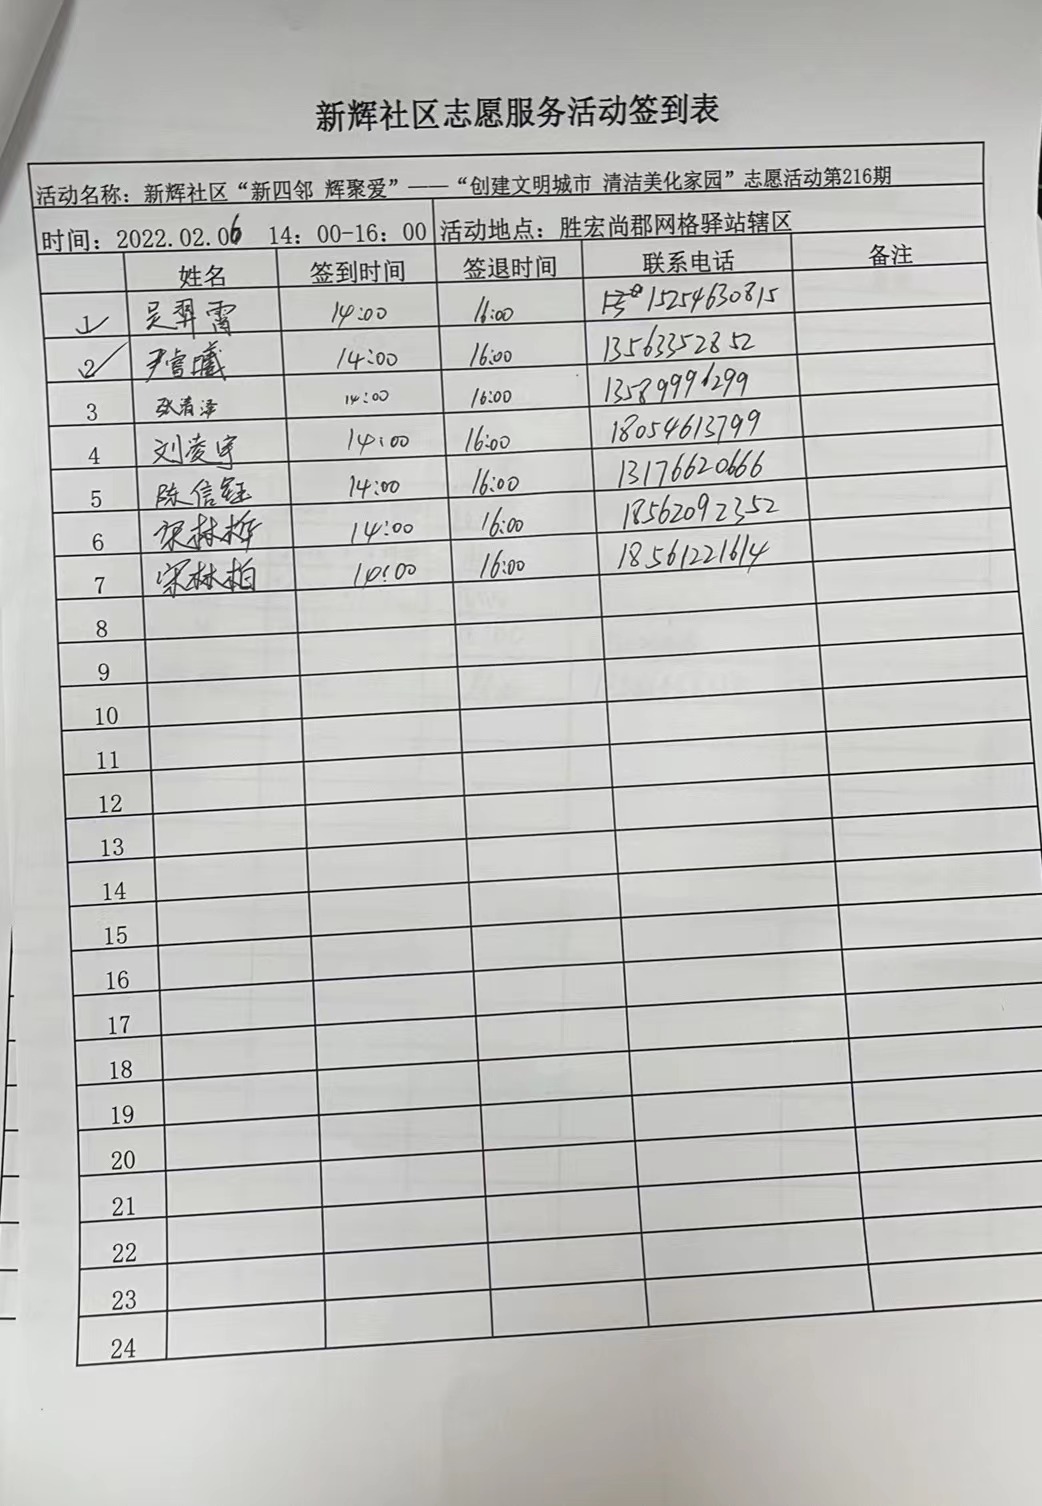 新辉社区志愿服务活动签到表
活动名称：新辉社区“新四邻 辉聚爱”——“创建文明城市 清洁美化家园”志愿活动第216期
时间：2022.02.06 14：00-16：00 活动地点：胜宏尚郡网格驿站辖区
姓名 签到时间 签退时间 联系电话 备注
1 吴羿霄 14:00 16:00 15254630815
2 尹睿曦 14:00 16:00 13563352852
3 张清泽 14:00 16:00 13589996299
4 刘凌宇 14:00 16:00 18054613799
5 陈信钰 14:00 16:00 13176620666
6 宋林桦 14:00 16:00 18562092352
7 宋林柏 14:00 16:00 18561221614
8
9
10
11
12
13
14
15
16
17
18
19
20
21
22
23
24